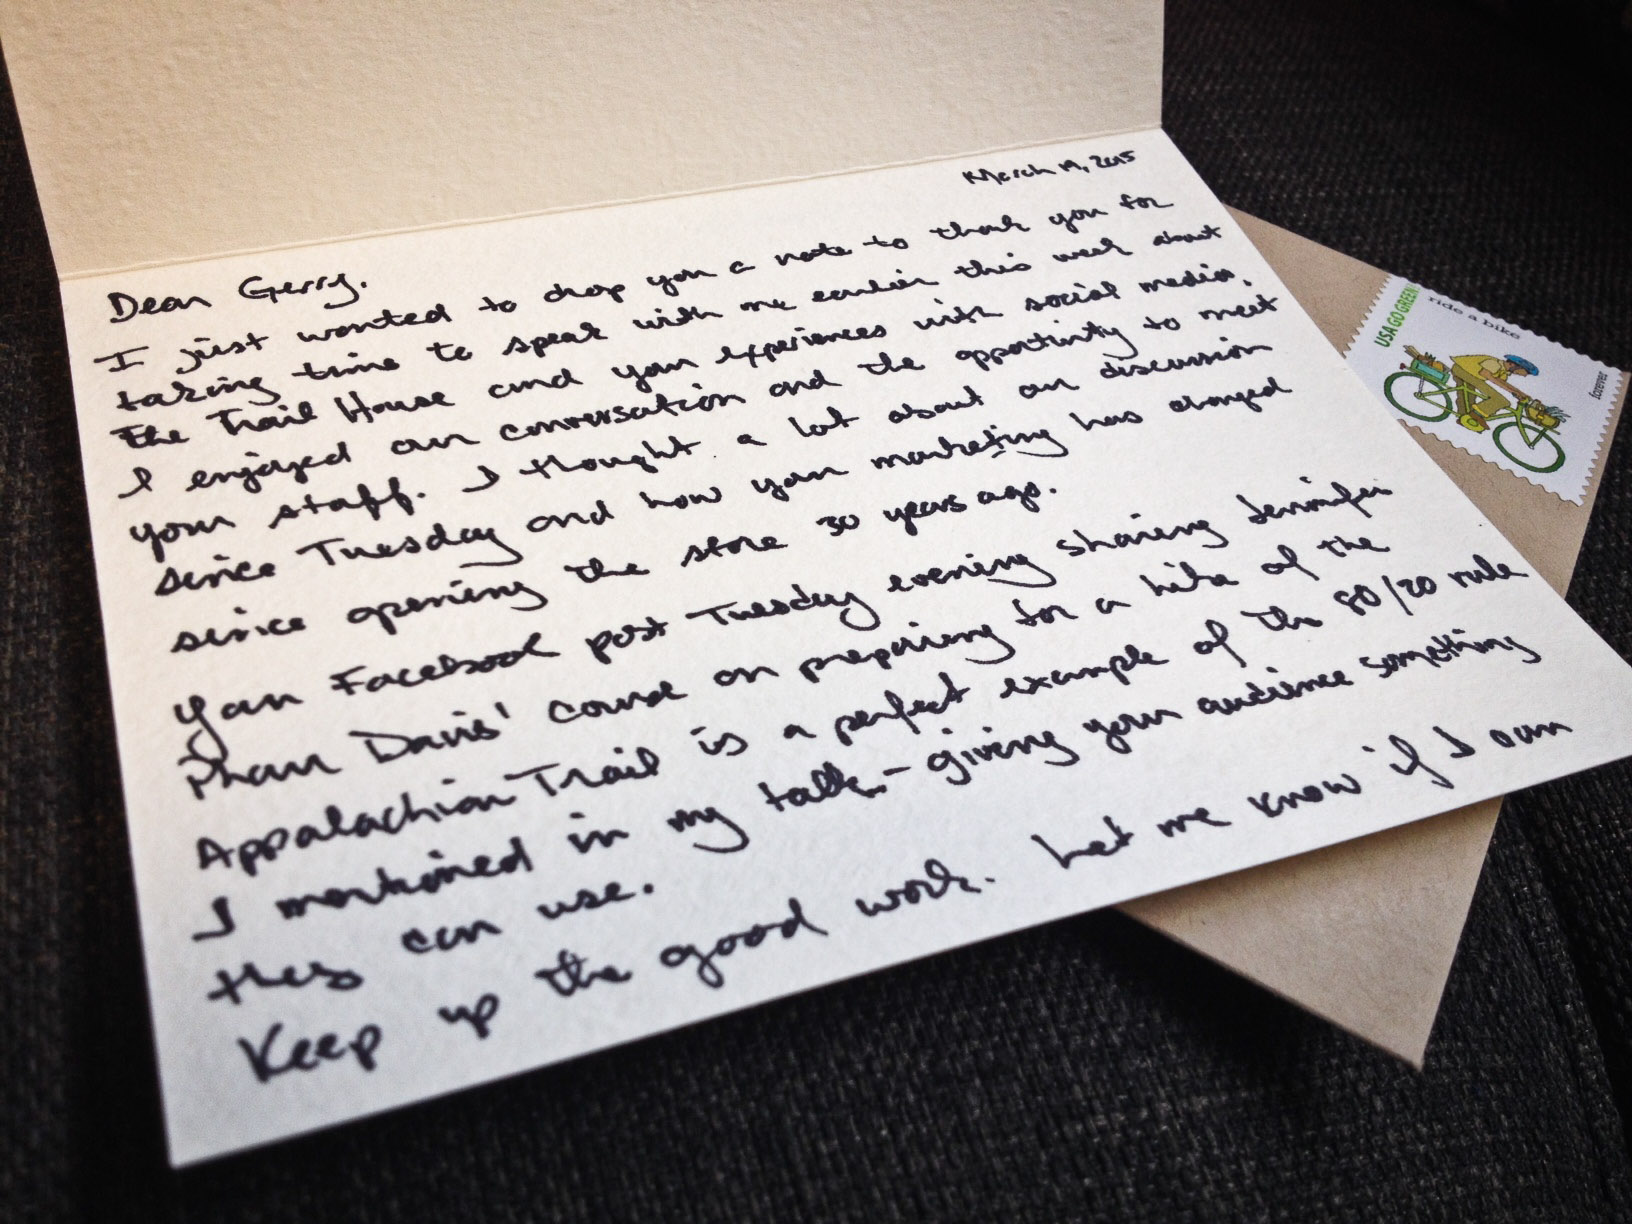 March 19, 2015
Dear Gerry,
I just wanted to drop you a note to thank you for
taking time to speak with me earlier this week about
the Trail House and your experiences with social media.
I enjoyed our conversation and the opportunity to meet
your staff. I thought a lot about our discussion
since Tuesday and how your marketing has changed
since opening the store 30 years ago.
Your Facebook post Tuesday evening sharing Jennifer
Pharr Davis' course on preparing for a hike of the
Appalachian Trail is a perfect example of the 80/20 rule
I mentioned in my talk - giving your audience something
they can use.
Keep up the good work. Let me know if I can
USA GO GREEN
ride a bike
forever